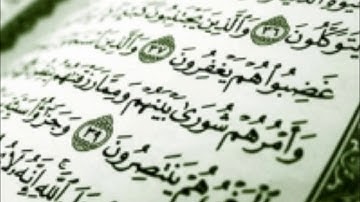 يَتَوَكَّلُونَ ٣٦ وَالَّذِينَ يَجْتَنِبُونَ
غَضِبُوا هُمْ يَغْفِرُونَ ٣٧ وَالَّذِينَ
وَأَمْرُهُمْ شُورَىٰ بَيْنَهُمْ وَمِمَّا رَزَقْنَٰهُمْ
هُمْ يَنتَصِرُونَ ٣٩ وَجَزَٰٓؤُا۟
اللَّهِ إِنَّهُ لَا